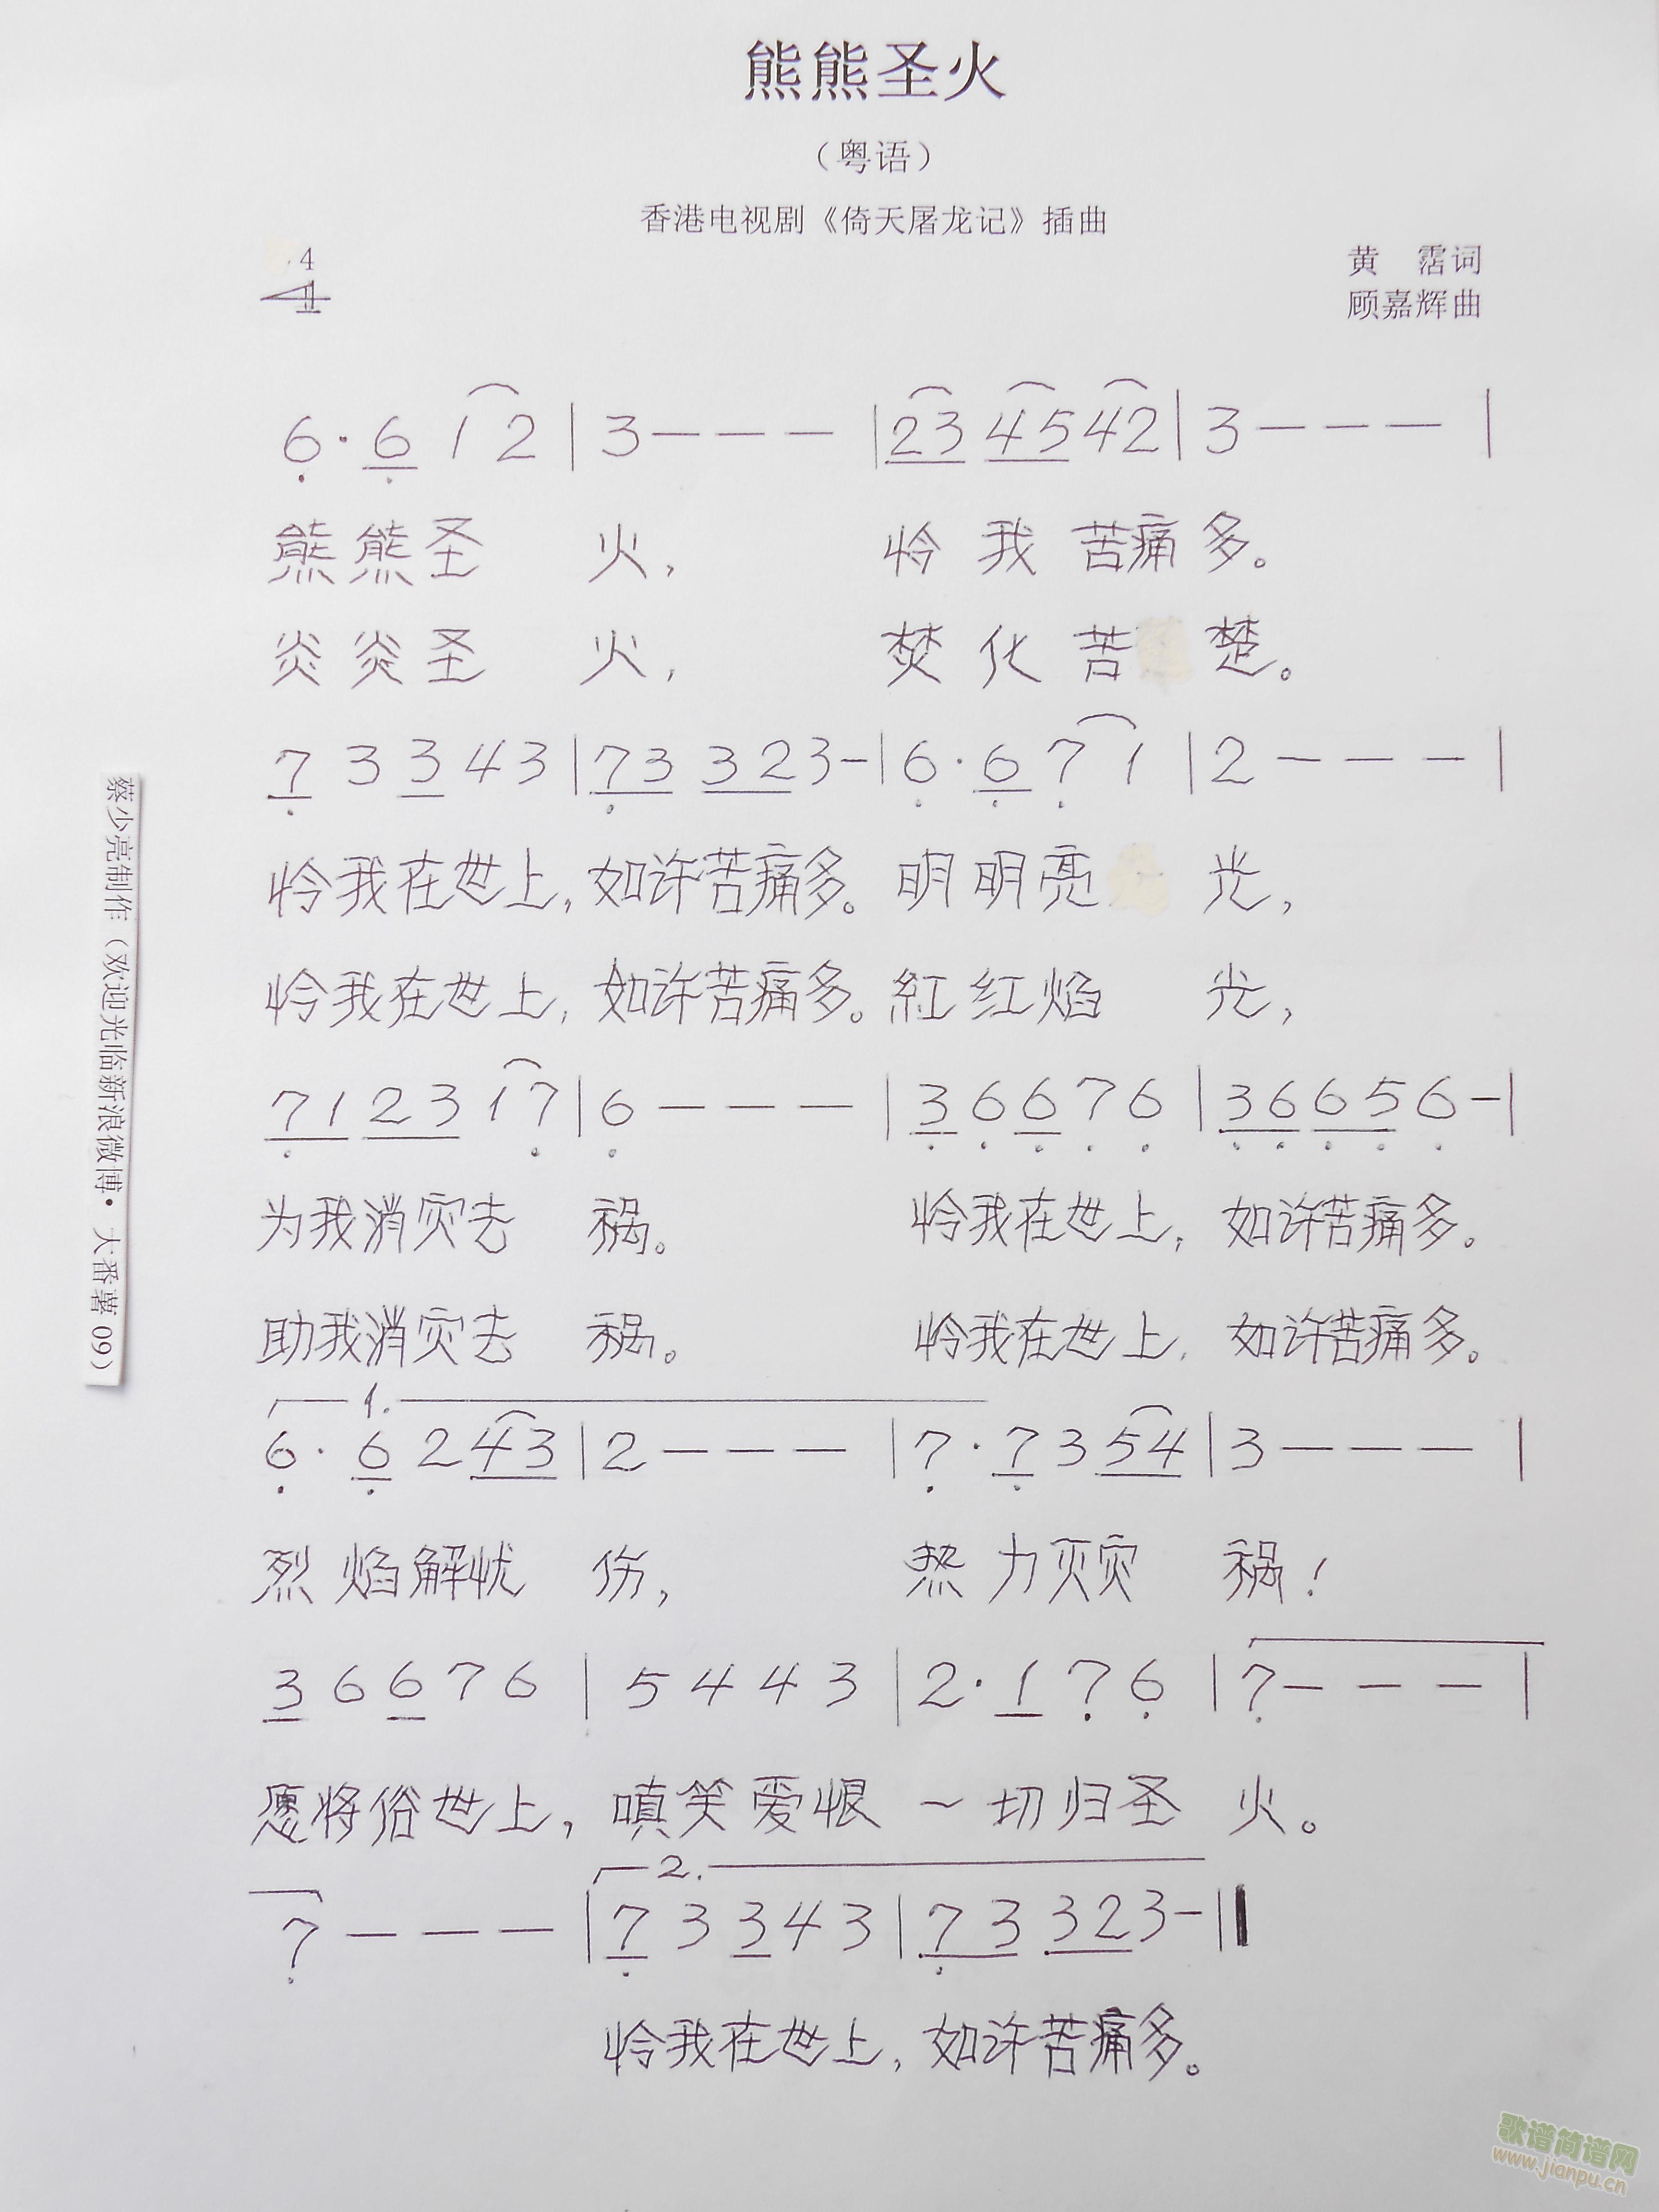 熊熊圣火
（粤语）
香港电视剧《倚天屠龙记》插曲
4
4
黄 霑词
顾嘉辉曲
6· 6 1 2 | 3 — — — | 23 45 42 | 3 — — — |
熊熊圣 火， 怜 我 苦痛 多。
炎炎圣 火， 焚 化 苦 楚。
7 3 3 4 3 | 73 32 3 — | 6· 6 7 1 | 2 — — — |
怜我在世上，如许苦痛多。明明亮 光，
怜我在世上，如许苦痛多。紅红焰 光，
71 23 1 7 | 6 — — — | 3 6 6 7 6 | 36 65 6 — |
为我消灾去 祸。 怜我在世上，如许苦痛多。
助我消灾去 祸。 怜我在世上，如许苦痛多。
1.
6· 6 2 43 | 2 — — — | 7· 7 3 54 | 3 — — — |
烈 焰解忧 伤， 热 力灭灾 祸！
3 6 6 7 6 | 5 4 4 3 | 2· 1 7 6 | 7 — — — |
愿将俗世上，嗔笑爱恨 一切归圣 火。
2.
7 — — — | 7 3 3 4 3 | 73 32 3 — ||
怜我在世上，如许苦痛多。
蔡少亮制作（欢迎光临新浪微博·大番薯09）
歌谱简谱网
www.jianpu.cn